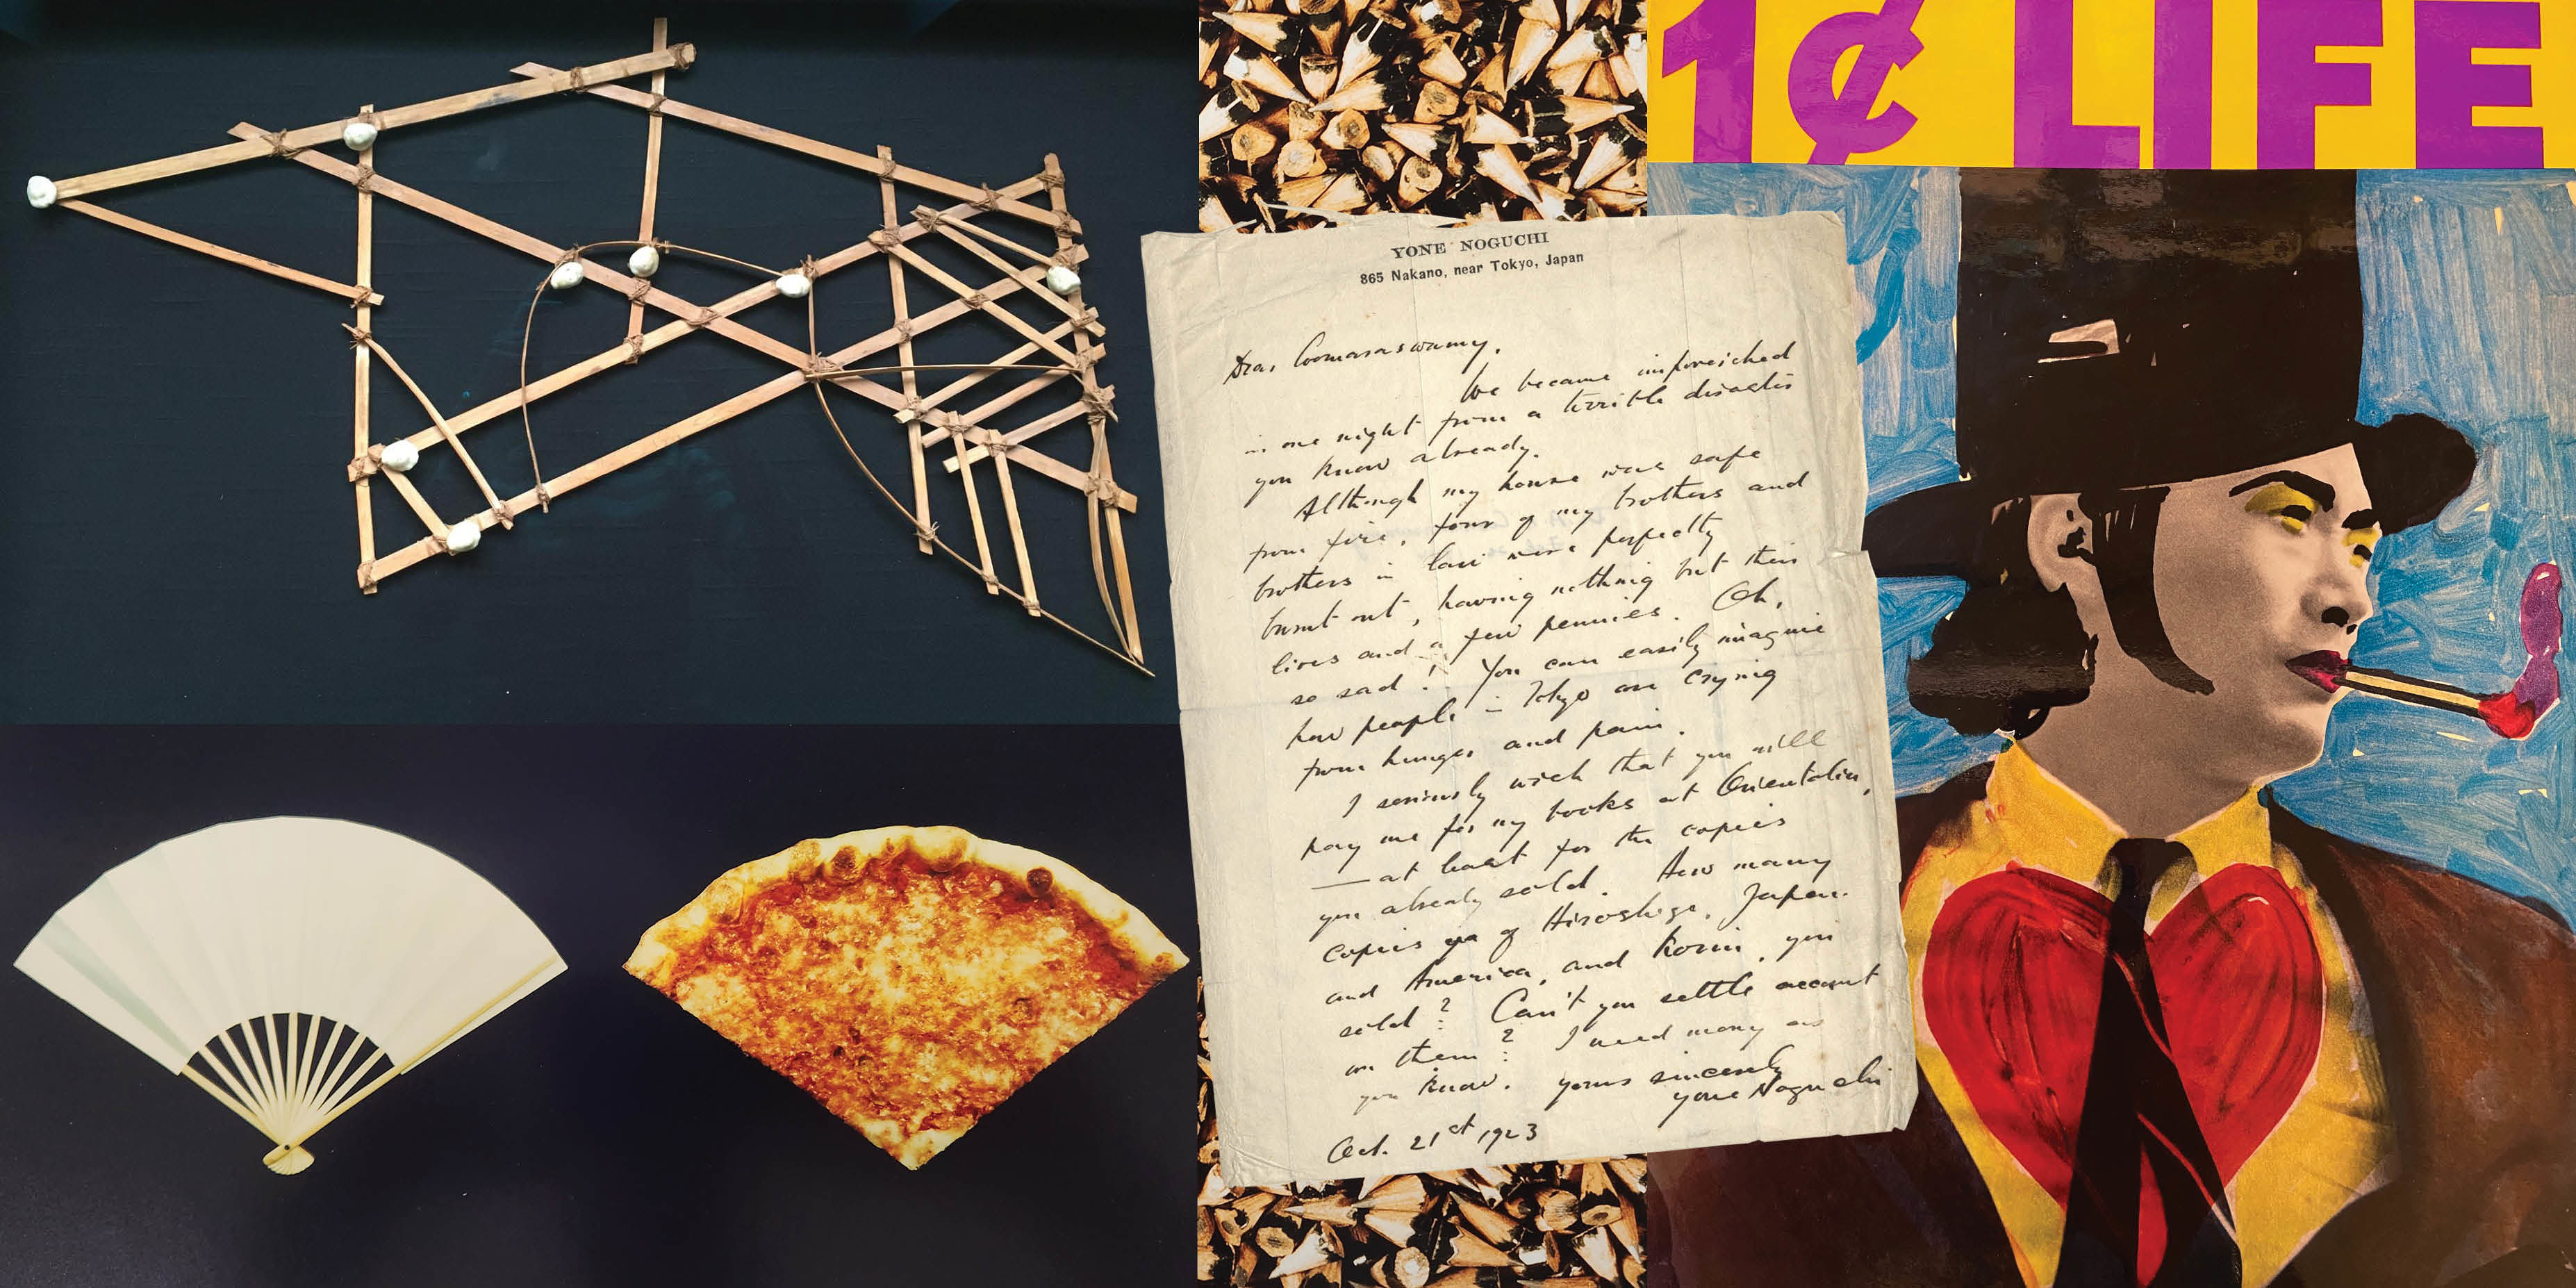 1¢ LIFE
YONE NOGUCHI
865 Nakano, near Tokyo, Japan
Dear Coomaraswamy,
We became impoverished
in one night from a terrible disaster
you know already.
Although my house was safe
from fire, four of my brothers and
brothers in law were perfectly
burnt out, having nothing but their
lives and a few pennies. Oh,
so sad! You can easily imagine
how people in Tokyo are crying
from hunger and pain.
I seriously wish that you will
pay me for my books at Orientalia,
— at least for the copies
you already sold. How many
copies of Hiroshige, Japan
and America, and Korin, you
sold? Can't you settle account
on them? I need money as
you know. yours sincerely
Yone Noguchi
Oct. 21st 1923